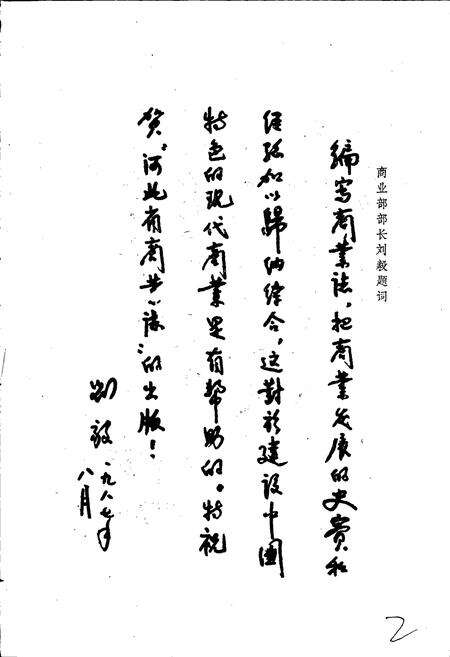 商业部部长刘毅题词
编写商業誌，把商業发展的史实和
经验加以歸纳综合，这對於建设中國
特色的现代商業是有幫助的。特祝
贺“河北省商业誌”的出版！
刘毅 一九八七年
八月
2